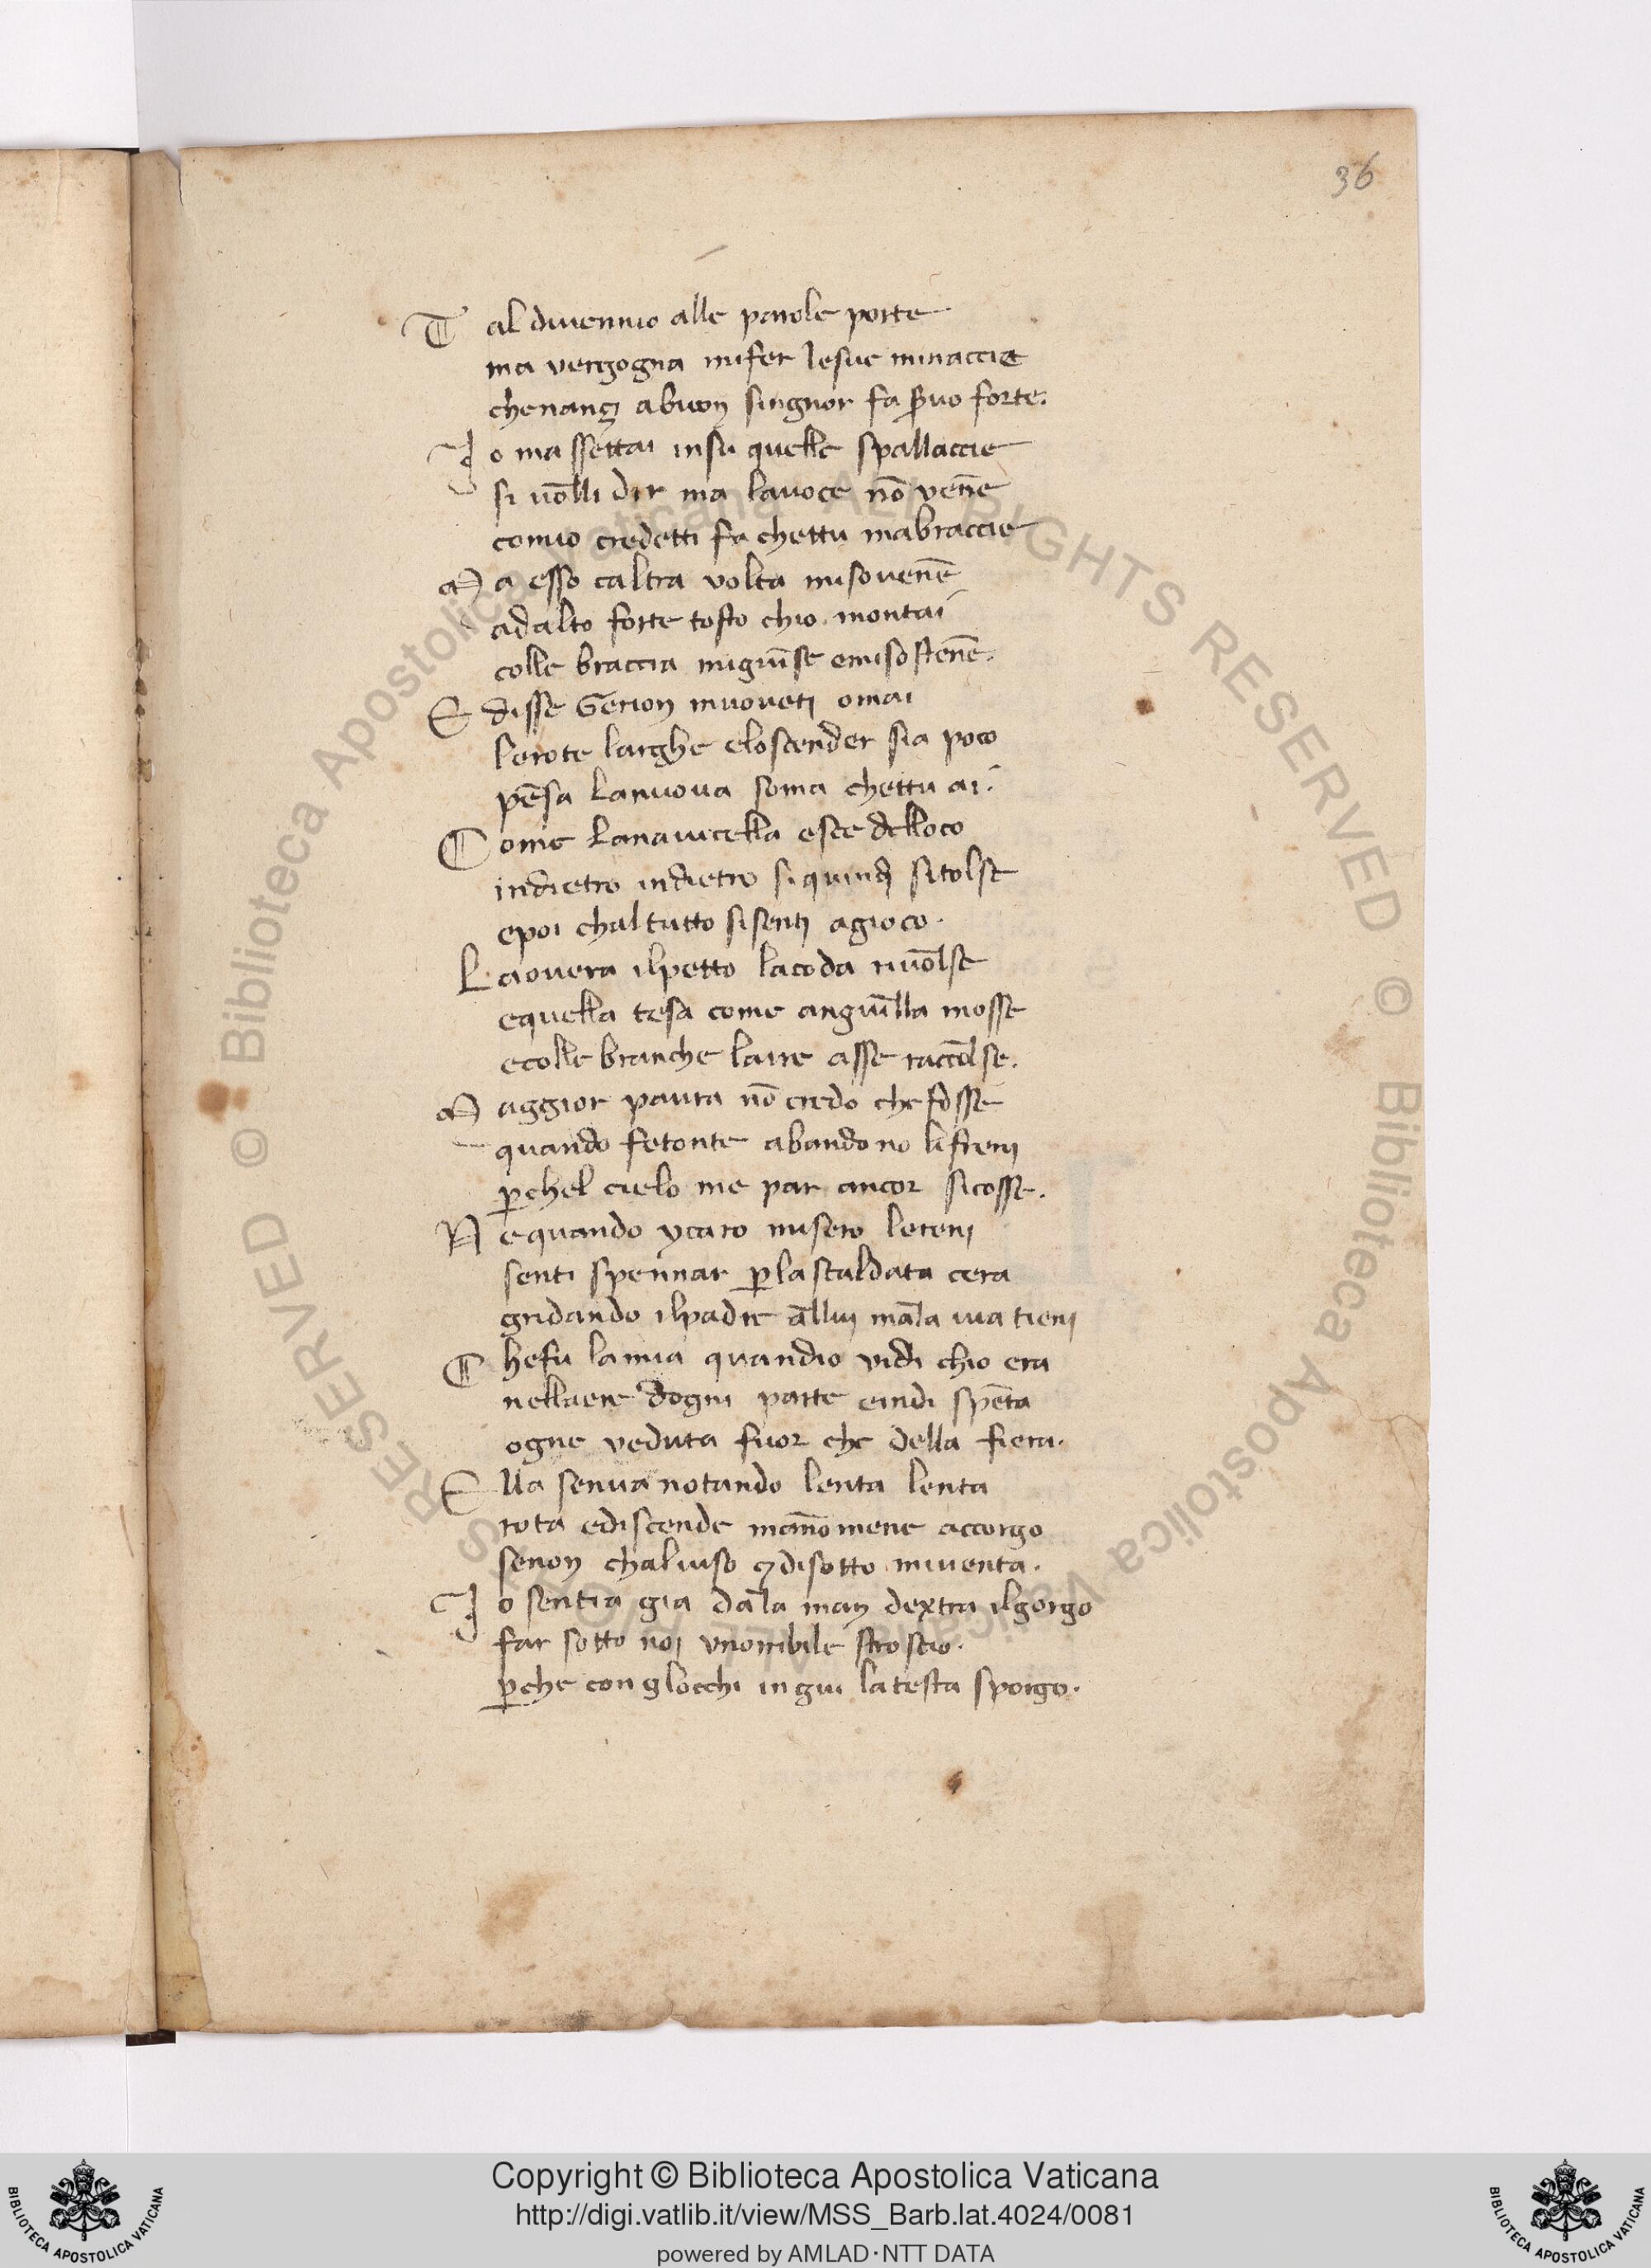 36
T al divennio alle parole porte
ma vergogna mifer lesue minaccie
chenançi abuon singnor fa s̄vo forte.
I o ma ssettai insu quelle spallaccie
si uolli dir ma lauoce nō venne
comio credetti fa chettu mabraccie
M a esso caltra volta misovenē
adalto forte tosto chio montai
colle braccia migiūse emisostenē.
E disse Gerion muoveti omai
lerote larghe eloscender sia poco
pēsa lanuova soma chettu ai.
C ome lanavicella esce delloco
indietro indietro siquindi sitolse
epoi chaltutto sisenti agioco.
L aovera ilpetto lacoda riuolse
equella tesa come anguilla mosse
ecolle branche laire asse raccolse.
M aggior paura nō credo che fosse
quando fetonte abandono lifreni
p̱chel cielo me par ancor sicosse.
N equando ycaro misero lereni
senti spennar p̱lascaldata cera
gridando ilpadre allui mala via tieni
C hefu lamia quandio vidi chio era
nellaere dogni parte euidi spēta
ogne veduta fuor che della fiera.
E lla senua notando lenta lenta
rota ediscende mānomene accorgo
senon chalviso ⁊disotto miventa.
I o sentia gia dala man dextra ilgorgo
far sotto noi vnorribile stroscio.
p̱che con glocchi ingiu latesta sporgo.
© Biblioteca Apostolica Vaticana ALL RIGHTS RESERVED © Biblioteca Apostolica Vaticana ALL RIGHTS RESERVED
Copyright © Biblioteca Apostolica Vaticana
http://digi.vatlib.it/view/MSS_Barb.lat.4024/0081
powered by AMLAD·NTT DATA
BIBLIOTECA APOSTOLICA VATICANA
BIBLIOTECA APOSTOLICA VATICANA